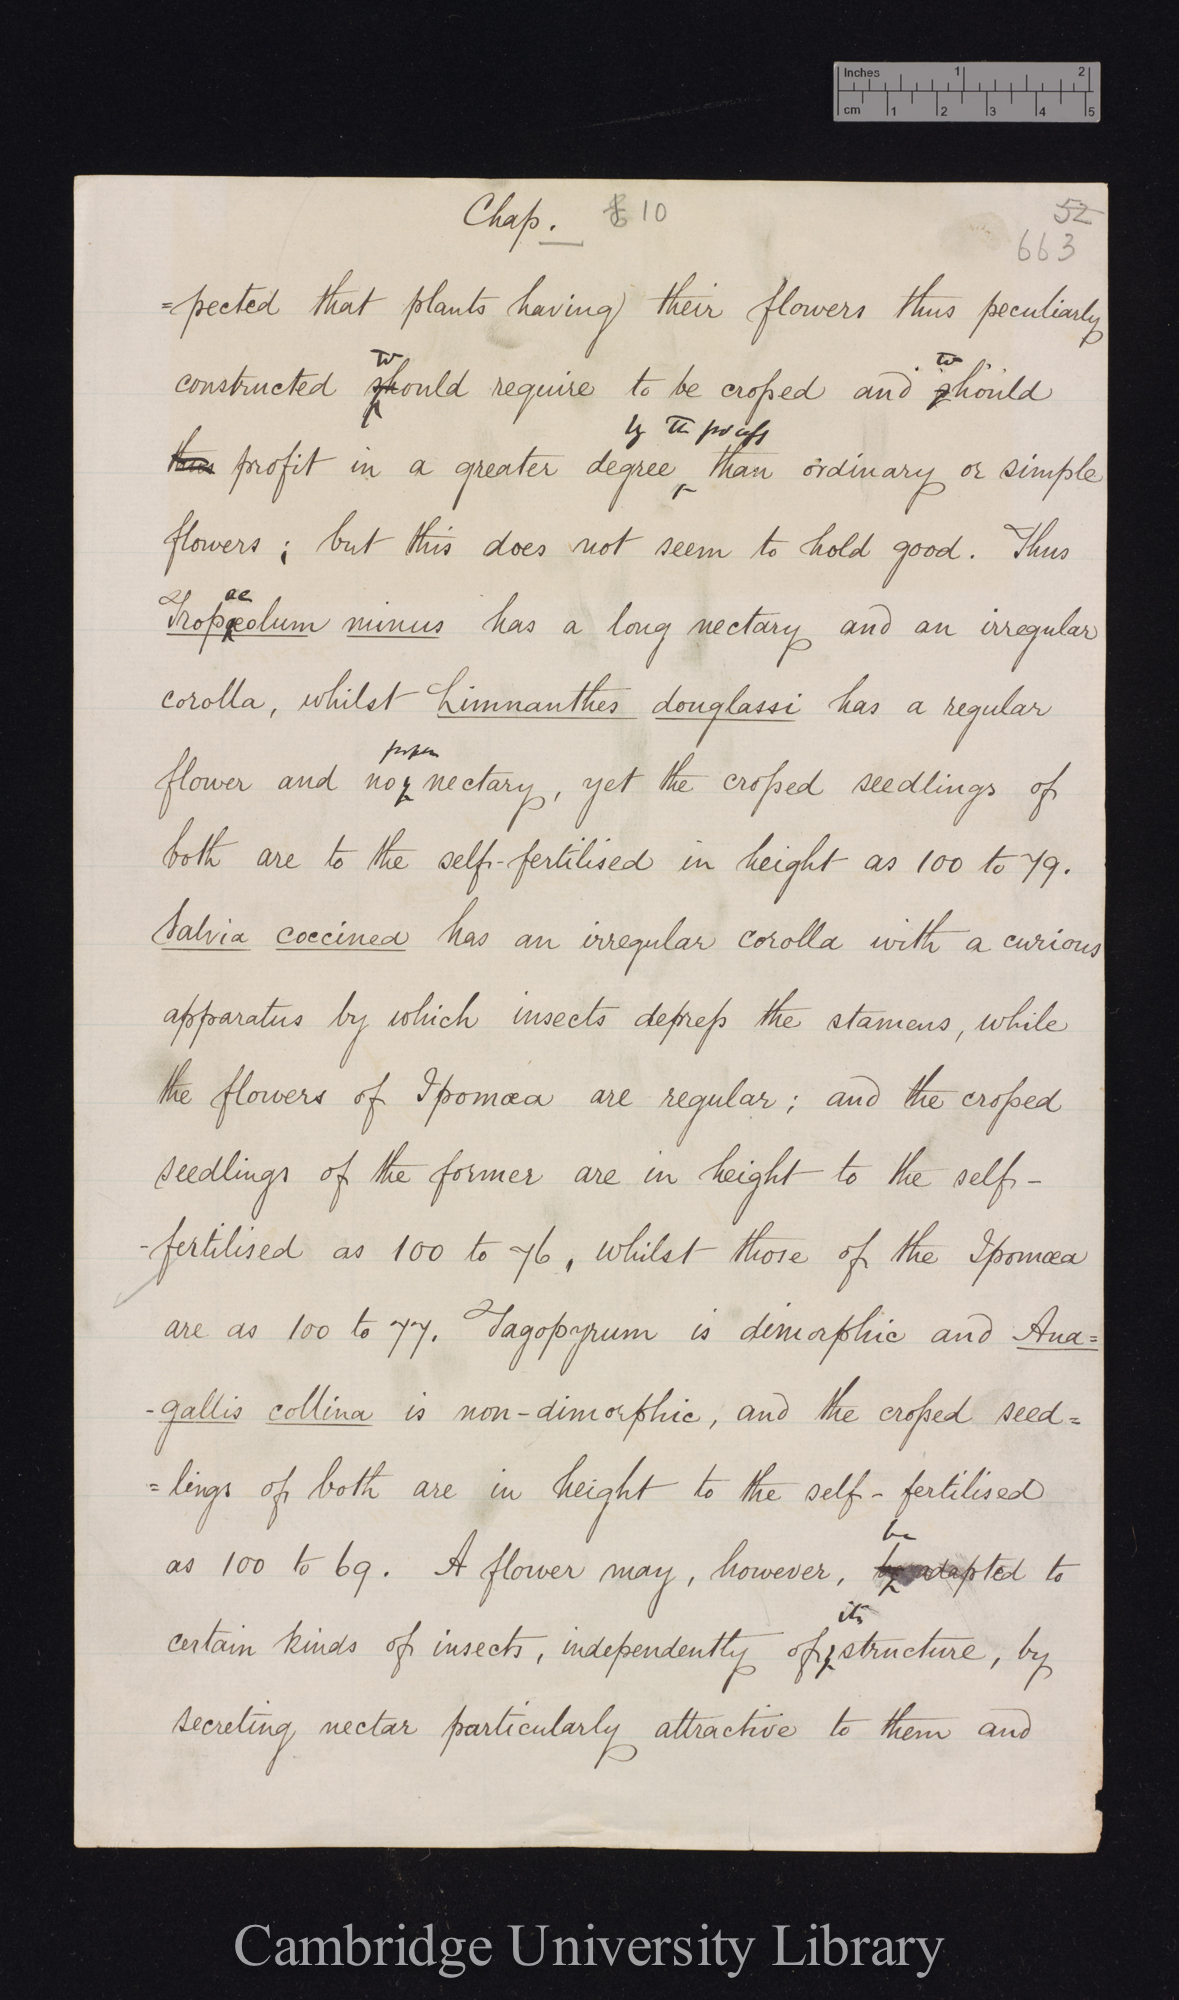 Inches 1 2
cm 1 2 3 4 5
Chap. 10
52
663
=pected that plants having their flowers thus peculiarly
to to
constructed should require to be crossed and should
by the process
thus profit in a greater degree than ordinary or simple
flowers; but this does not seem to hold good. Thus
ae
Tropæolum minus has a long nectary and an irregular
corolla, whilst Limnanthes douglassi has a regular
proper
flower and no nectary, yet the crossed seedlings of
both are to the self-fertilised in height as 100 to 79.
Salvia coccinea has an irregular corolla with a curious
apparatus by which insects depress the stamens, while
the flowers of Ipomœa are regular; and the crossed
seedlings of the former are in height to the self-
-fertilised as 100 to 76, whilst those of the Ipomœa
are as 100 to 77. Fagopyrum is dimorphic and Ana=
-gallis collina is non-dimorphic, and the crossed seed=
=lings of both are in height to the self-fertilised
be
as 100 to 69. A flower may, however, be adapted to
its
certain kinds of insects, independently of structure, by
secreting nectar particularly attractive to them and
Cambridge University Library